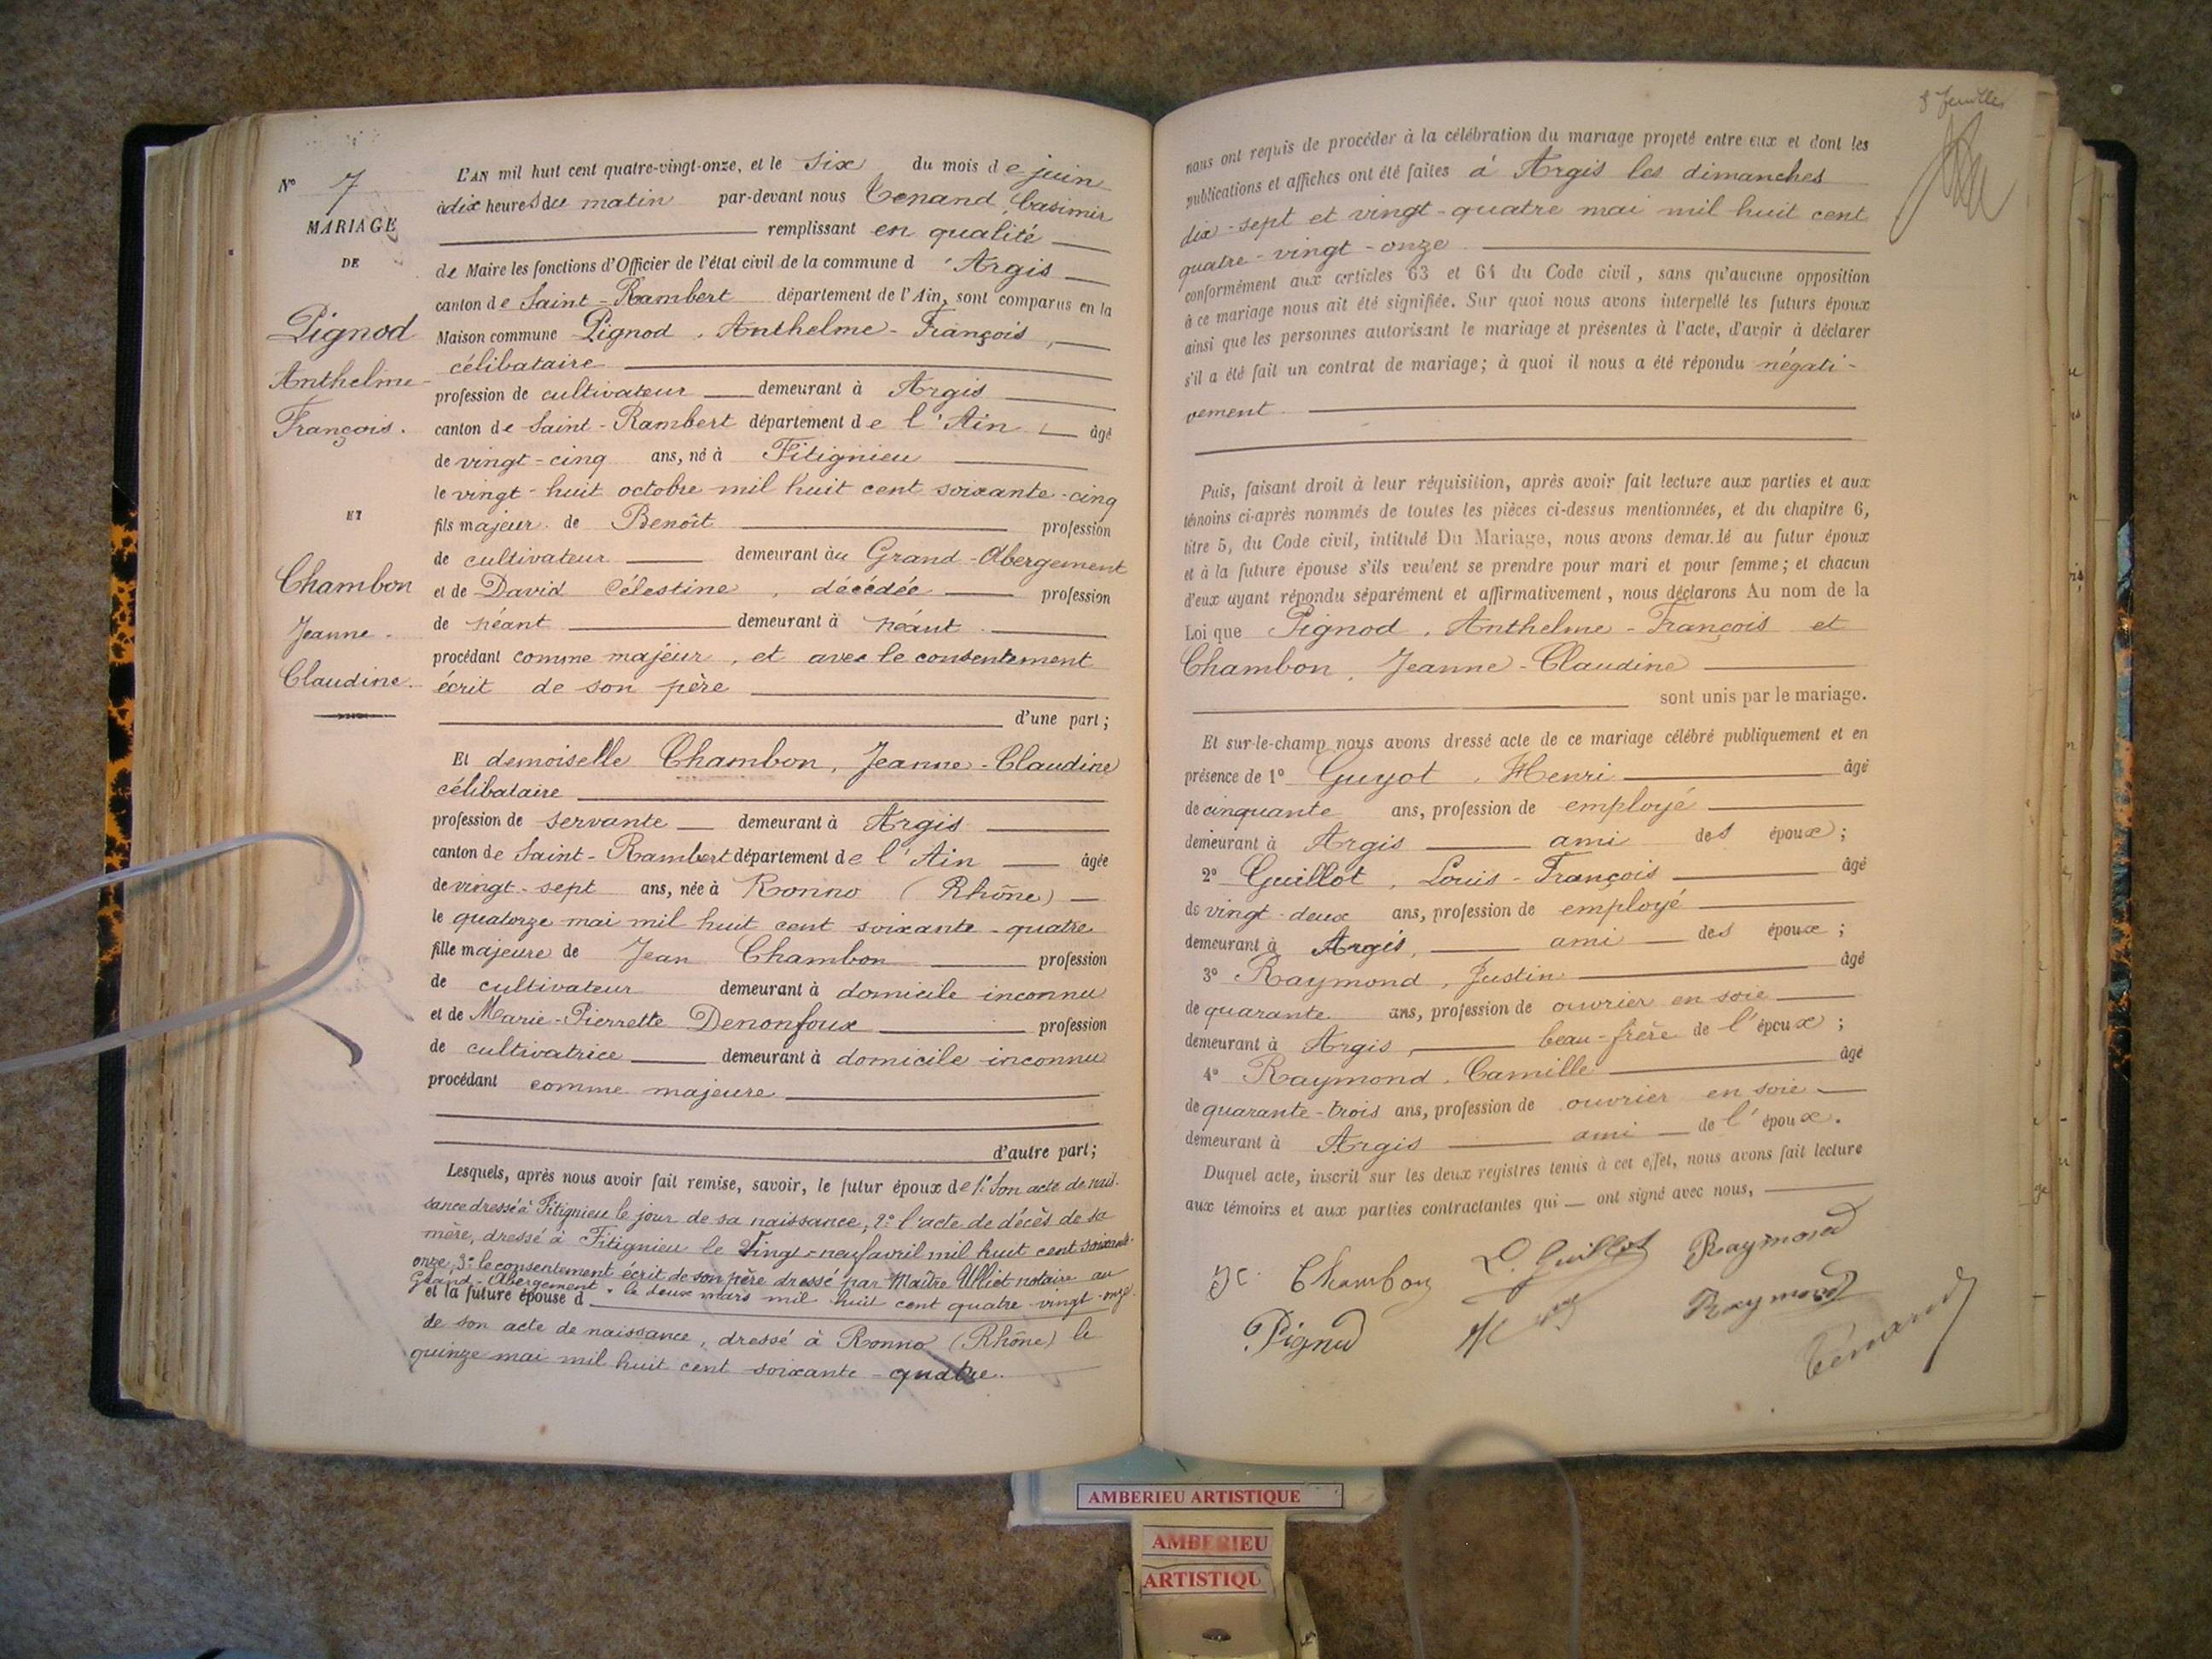 N° 7
MARIAGE
DE
Pignod
Anthelme-
François.
ET
Chambon
Jeanne-
Claudine.
L'AN mil huit cent quatre-vingt-onze, et le six du mois de juin
à dix heures du matin par-devant nous Tenand, Casimir
remplissant en qualité
de Maire les fonctions d'Officier de l'état civil de la commune d'Argis
canton de Saint-Rambert département de l'Ain, sont comparus en la
Maison commune Pignod, Anthelme-François,
célibataire
profession de cultivateur demeurant à Argis
canton de Saint-Rambert département de l'Ain âgé
de vingt-cinq ans, né à Fitignieu
le vingt-huit octobre mil huit cent soixante-cinq
fils majeur de Benoît profession
de cultivateur demeurant au Grand-Abergement
et de David Célestine, décédée profession
de néant demeurant à néant
procédant comme majeur, et avec le consentement
écrit de son père
d'une part;
Et demoiselle Chambon, Jeanne-Claudine
célibataire
profession de servante demeurant à Argis
canton de Saint-Rambert département de l'Ain âgée
de vingt-sept ans, née à Ronno (Rhône)
le quatorze mai mil huit cent soixante-quatre
fille majeure de Jean Chambon profession
de cultivateur demeurant à domicile inconnu
et de Marie-Pierrette Denonfoux profession
de cultivatrice demeurant à domicile inconnu
procédant comme majeure
d'autre part;
Lesquels, après nous avoir fait remise, savoir, le futur époux de 1° Son acte de nais-
sance dressé à Fitignieu le jour de sa naissance; 2° l'acte de décès de sa
mère, dressé à Fitignieu le vingt-neuf avril mil huit cent soixante-
onze, 3° le consentement écrit de son père dressé par Maître Ulliet notaire au
Grand-Abergement, le deux mars mil huit cent quatre-vingt-onze.
et la future épouse d
de son acte de naissance, dressé à Ronno (Rhône) le
quinze mai mil huit cent soixante-quatre.
3 feuille
nous ont requis de procéder à la célébration du mariage projeté entre eux et dont les
publications et affiches ont été faites à Argis les dimanches
dix-sept et vingt-quatre mai mil huit cent
quatre-vingt-onze
conformément aux articles 63 et 64 du Code civil, sans qu'aucune opposition
à ce mariage nous ait été signifiée. Sur quoi nous avons interpellé les futurs époux
ainsi que les personnes autorisant le mariage et présentes à l'acte, d'avoir à déclarer
s'il a été fait un contrat de mariage; à quoi il nous a été répondu négati-
vement.
Puis, faisant droit à leur réquisition, après avoir fait lecture aux parties et aux
témoins ci-après nommés de toutes les pièces ci-dessus mentionnées, et du chapitre 6,
titre 5, du Code civil, intitulé Du Mariage, nous avons demandé au futur époux
et à la future épouse s'ils veulent se prendre pour mari et pour femme; et chacun
d'eux ayant répondu séparément et affirmativement, nous déclarons Au nom de la
Loi que Pignod, Anthelme-François et
Chambon, Jeanne-Claudine
sont unis par le mariage.
Et sur-le-champ nous avons dressé acte de ce mariage célébré publiquement et en
présence de 1° Guyot, Henri âgé
de cinquante ans, profession de employé
demeurant à Argis ami des époux;
2° Guillot, Louis-François âgé
de vingt-deux ans, profession de employé
demeurant à Argis, ami des époux;
3° Raymond, Justin âgé
de quarante ans, profession de ouvrier en soie
demeurant à Argis, beau-frère de l'époux;
4° Raymond, Camille âgé
de quarante-trois ans, profession de ouvrier en soie
demeurant à Argis ami de l'époux.
Duquel acte, inscrit sur les deux registres tenus à cet effet, nous avons fait lecture
aux témoins et aux parties contractantes qui ont signé avec nous,
Chambon L. Guillot Raymond
Pignod Raymond Ténand
AMBERIEU ARTISTIQUE
AMBERIEU
ARTISTIQU